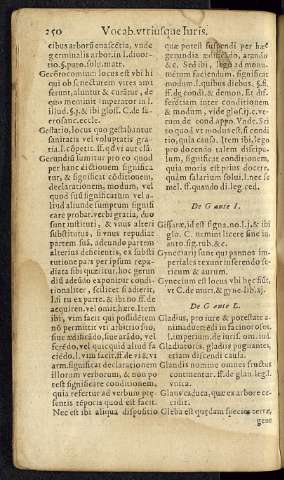 250 Vocab. vtriusque Iuris.
cibus arborũ enascẽtia, vnde
germinalis arbor. in l. diuor-
tio. §. pato. solu. matr.
Gerõtocomium locus est vbi hi
qui ob senectutem vires ami
serunt, aluntur & curãtur, de
quo meminit imperator in l.
illud. §. j. & ibi gloss. C. de sa-
crosanc. eccle.
Gestatio, locus quo gestabantur
sanitatis vel voluptatis gra-
tia.
Gerundiũ sumitur pro eo quod
per hanc dictionem significa
tur, & significat cõditionem,
declarationem, modum, vel
quod sub significatur vel a-
liud aliunde sumptum signifi
care probat. verbi gratia, duo
sunt instituti, & vnus alteri
substitutus, si vnus repudiat
partem suã, adeundo partem
alterius deficientis, ex substi
tutione para per ipsum repu-
diata sibi quæritur, hoc gerun
diũ adeũdo exponitur condi-
tionaliter, scilicet si adierit,
acquiren. vel omit. hære. Item
ibi, vim facit qui possidẽtem
nõ permittit vti arbitrio suo,
siue ædificãdo, siue arãdo, vel
serẽdo, vel quicquid aliud fa
ciẽdo. l. vim facit. ff. de vi & vi
arm. significat declarationem
illorum verborum, & non po
test significare conditionem,
quia refertur ad verbum præ-
sentis tẽporis quod est facit.
Nec est ibi aliqua dispositio
quæ poteſt ſuſpendi per hæc
gerundia ædificando, arando
& c. Sed ibi, lego ad monu-
mẽtum faciendum, significat
modum. l. quibus diebus. §. fi.
ff. de condi. & demon. Et dif-
ferẽtiam inter conditionem
& modum, vide
quo quod vt modus est, si condi
tio, quia causa. Item ibi, lego
pro docendo talem discipu-
lum, significat conditionem,
quia moris est prius docere,
quàm salarium solui. l. nec se
mel. ff. quando di. leg. ced.
De G ante I.
autno. sig. rub. & c.
Gynæciarij sunt qui pannos im-
periales texunt inserendo se-
ricum & aurum.
Gynecium est locus vbi hec fiũt,
De G ante L.
Gladius, pro iure & potestate a-
nimaduertẽdi in facinorosos.
l. imperium. de iuris. om. iud.
Gladiatoris, gladiis pugnantes,
etiam discendi causa.
Glandis nomine omnes fructus
continentur. ff. de glan. leg. l.
vnica.
Glans caduca, quæ ex arbore ce-
cidit.
Gleba est quædam species terræ,
gene